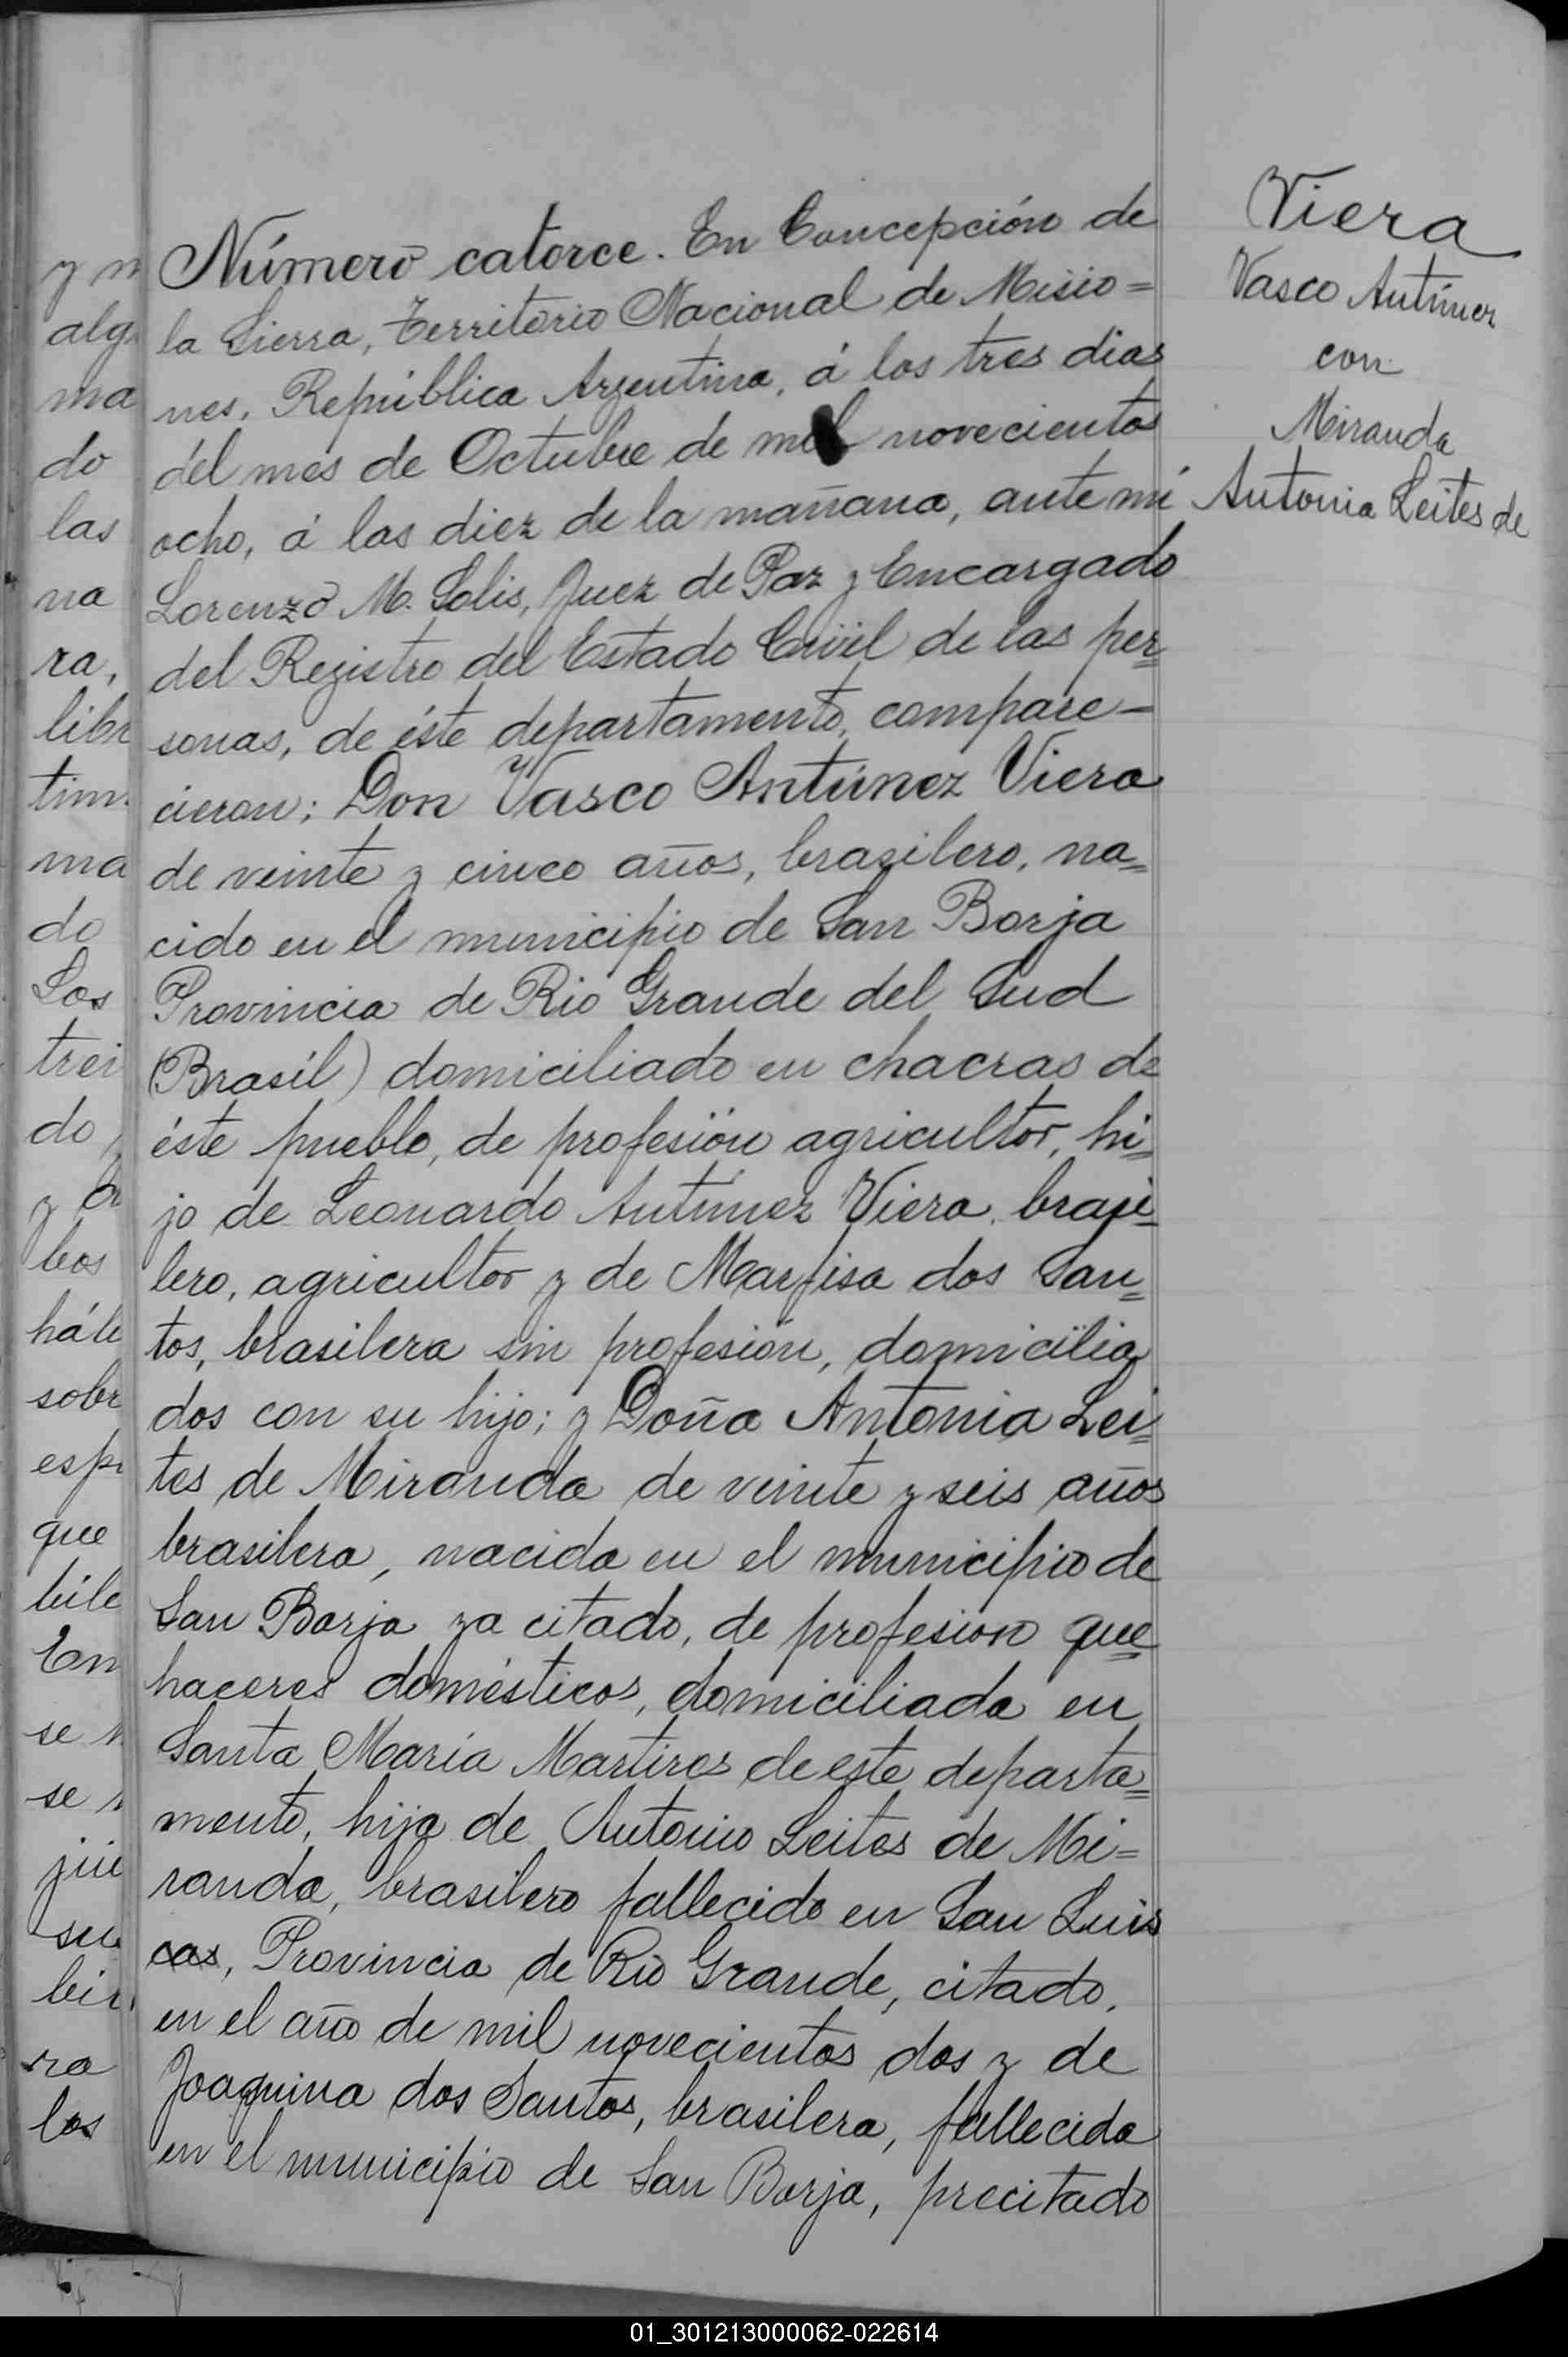 Número catorce. En Concepción de
la Sierra, Territorio Nacional de Misio=
nes, República Argentina, á los tres dias
del mes de Octubre de mil novecientos
ocho, á las diez de la mañana, ante mi
Lorenzo M. Solis, Juez de Paz y Encargado
del Registro del Estado Civil de las per=
sonas, de éste departamento, compare-
cieron; Don Vasco Antúnez Viera
de veinte y cinco años, brazilero, na=
cido en el municipio de San Borja
Provincia de Rio Grande del Sud
(Brasil) domiciliado en chacras de
éste pueblo, de profesión agricultor, hi=
jo de Leonardo Antunez Viera, braji=
lero, agricultor y de Marfisa dos San=
tos, brasilera sin profesión, domicilia
dos con su hijo; y Doña Antonia Lei=
tes de Miranda de veinte y seis años
brasilera, nacida en el municipio de
San Borja ya citado, de profesion que=
haceres domésticos, domiciliada en
Santa Maria Martires de este departa=
mento, hija de Antonio Leites de Mi=
randa, brasilero fallecido en San Luis
cas, Provincia de Rio Grande, citado,
en el año de mil novecientos dos y de
Joaquina dos Santos, brasilera, fallecida
en el municipio de San Borja, precitado
Viera
Vasco Antúnez
con
Miranda
Antonia Leites de
y m
alg
ma
do
las
na
ra,
libr
tim
ma
do
Los
trei
do
y
bos
háli
sobr
esp
que
bile
En
se
se
jui
su
bir
ra
los
01_301213000062-022614